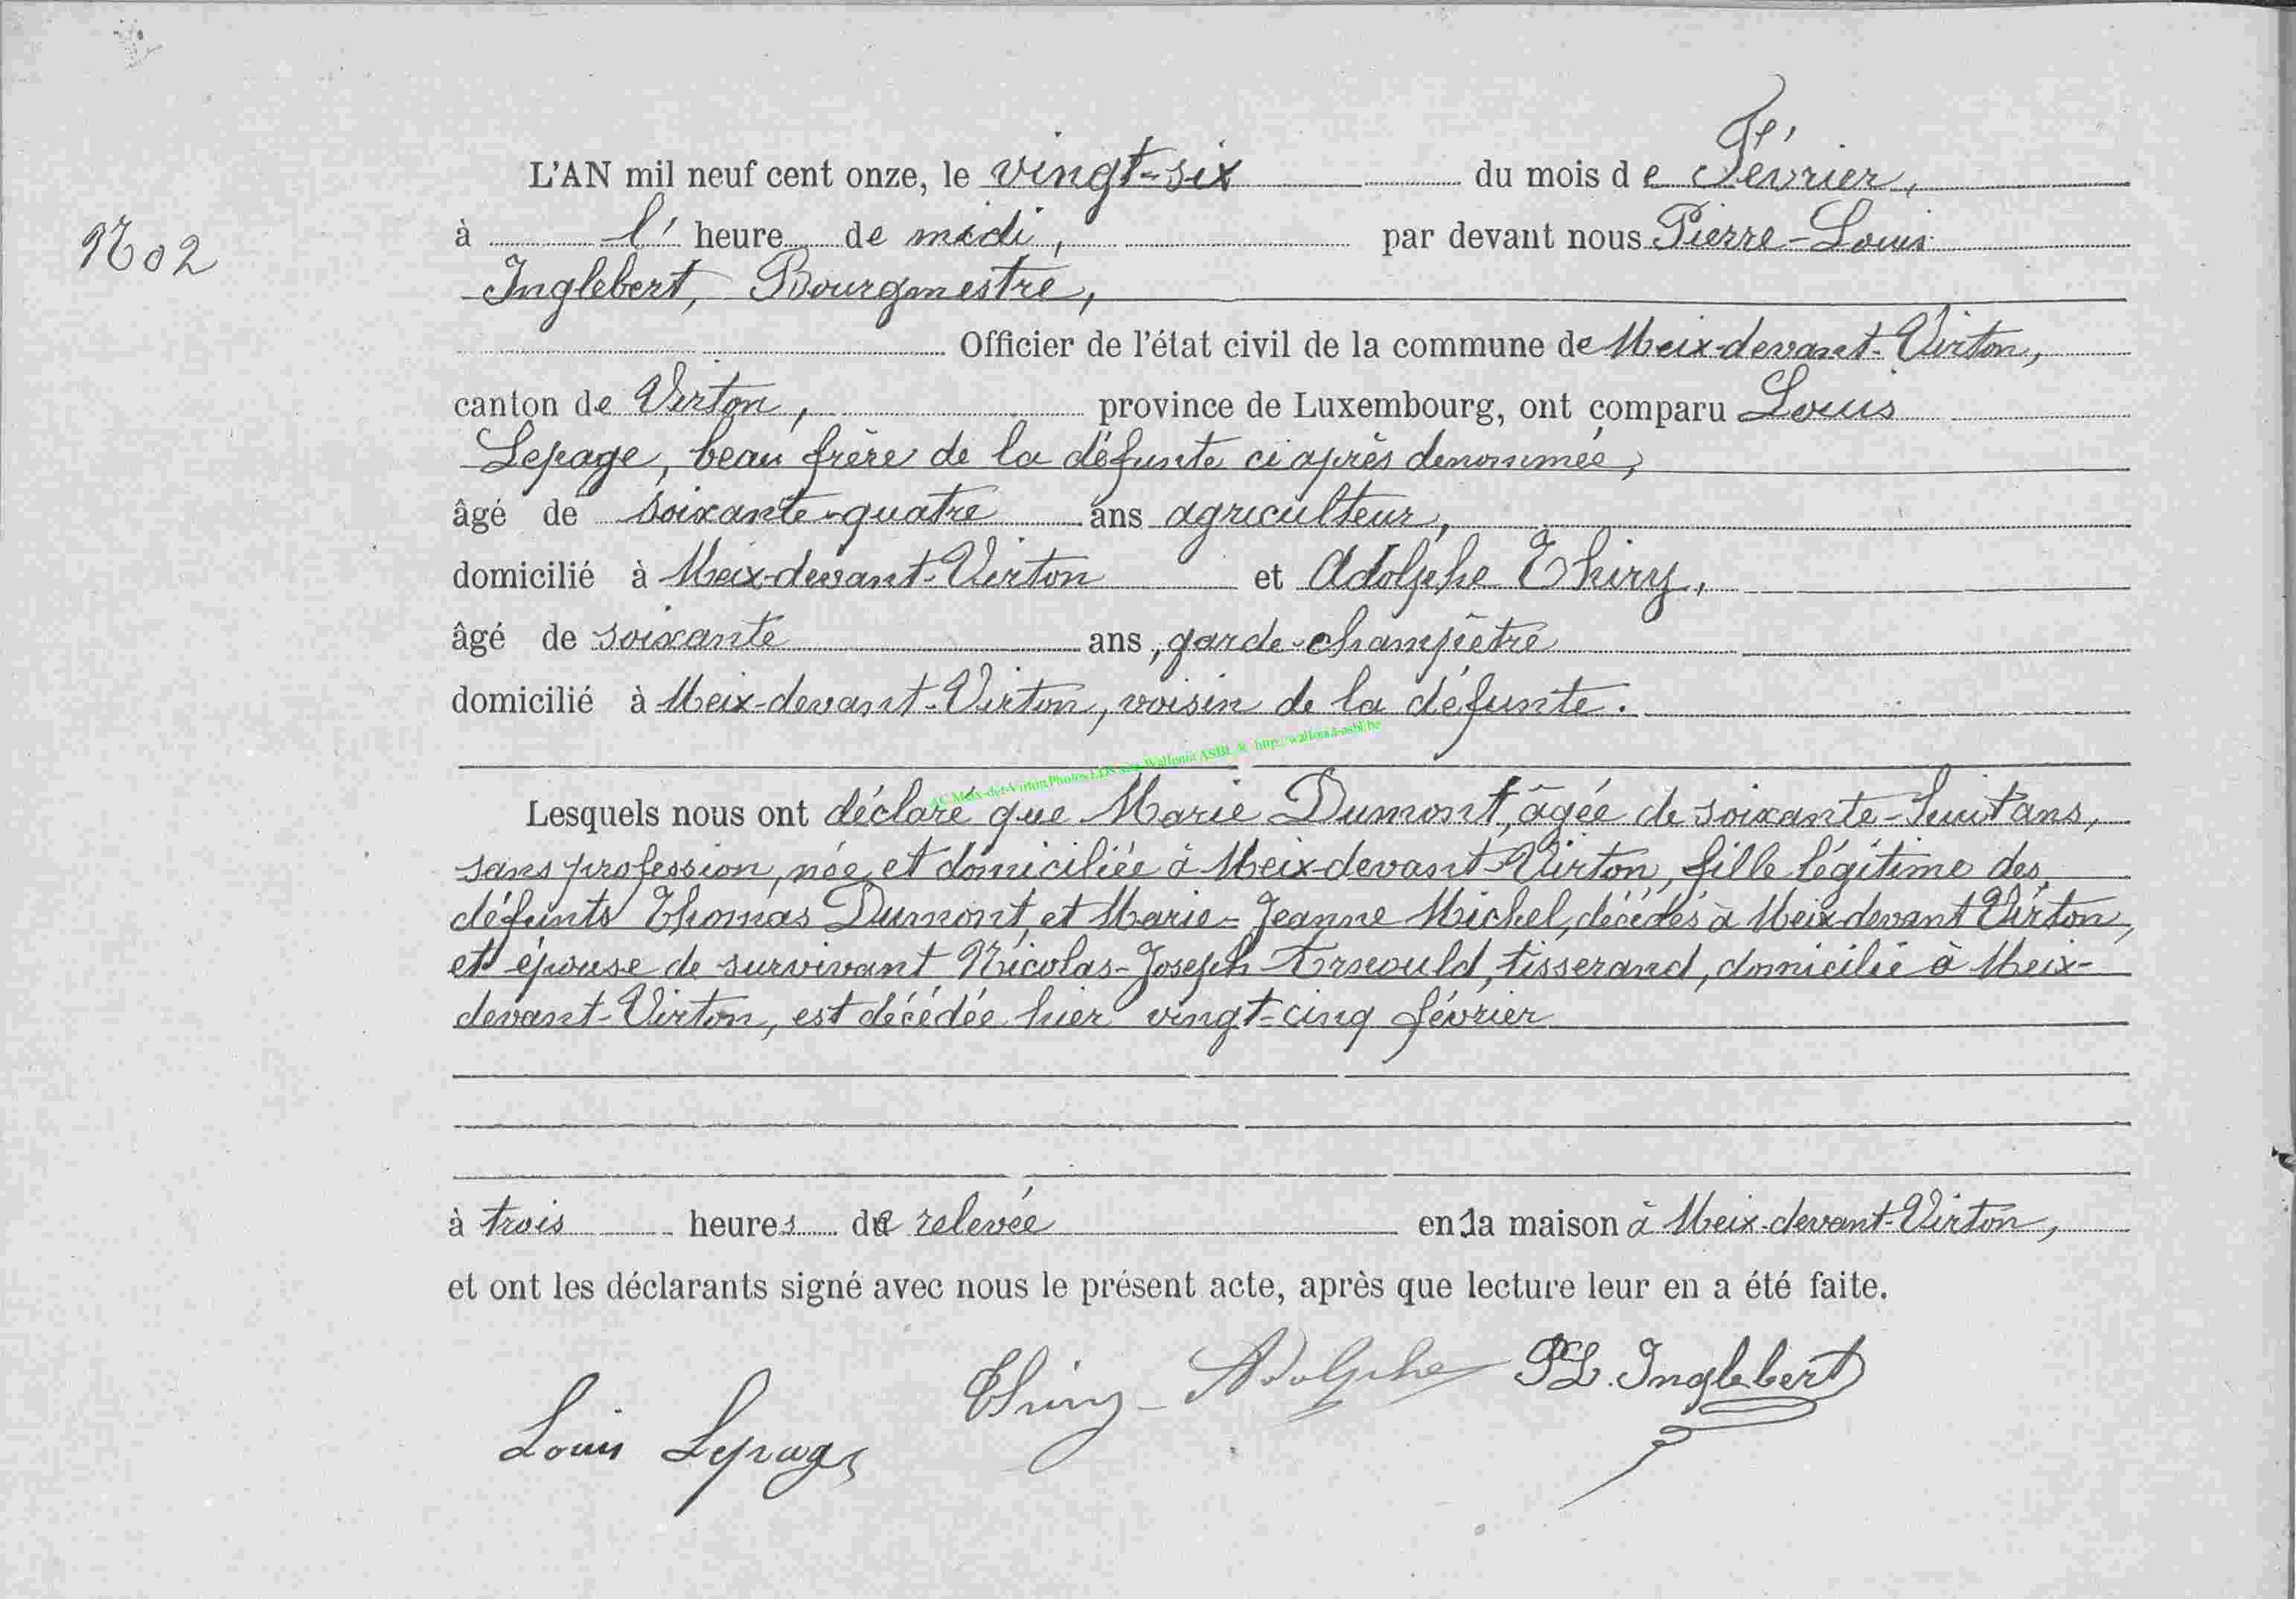 L'AN mil neuf cent onze, le vingt-six du mois de Février,
No 2
à l' heure de midi, par devant nous Pierre-Louis
Inglebert, Bourgmestre,
Officier de l'état civil de la commune de Meix-devant-Virton,
canton de Virton, province de Luxembourg, ont comparu Louis
Lepage, beau frère de la défunte ci après dénommée,
âgé de soixante-quatre ans agriculteur,
domicilié à Meix-devant-Virton et Adolphe Thiry,
âgé de soixante ans, garde-champêtre
domicilié à Meix-devant-Virton, voisin de la défunte.
AC Meix-dvt-Virton Wallonia ASBL & http://wallonia-asbl.be
Lesquels nous ont déclaré que Marie Dumont, âgée de soixante-huit ans,
sans profession, née et domiciliée à Meix-devant-Virton, fille légitime des
défunts Thomas Dumont, et Marie-Jeanne Michel, décédés à Meix-devant Virton,
et épouse de survivant Nicolas-Joseph Arnould, tisserand, domicilié à Meix-
devant-Virton, est décédée hier vingt-cinq février
à trois heures de relevée en la maison à Meix-devant-Virton,
et ont les déclarants signé avec nous le présent acte, après que lecture leur en a été faite.
Thiry-Adolphe PL. Inglebert
Louis Lepage